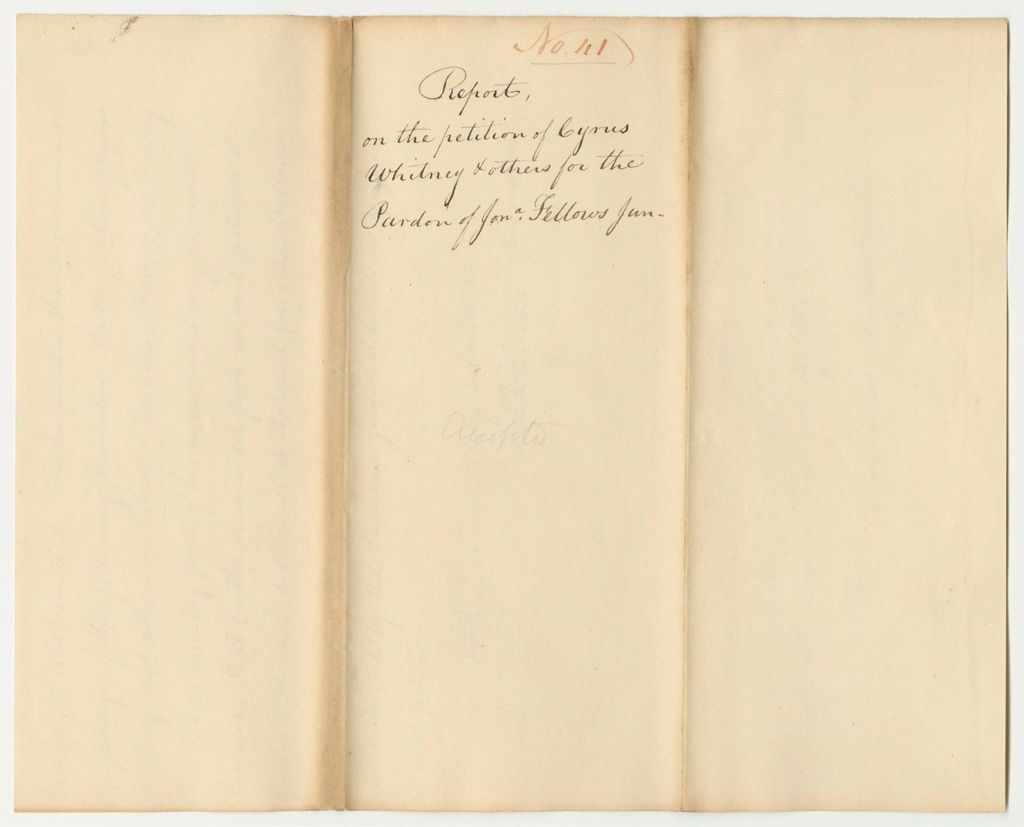 No. 41
Report,
on the petition of Cyrus
Whitney & others for the
Pardon of Jonª. Fellows Jun-